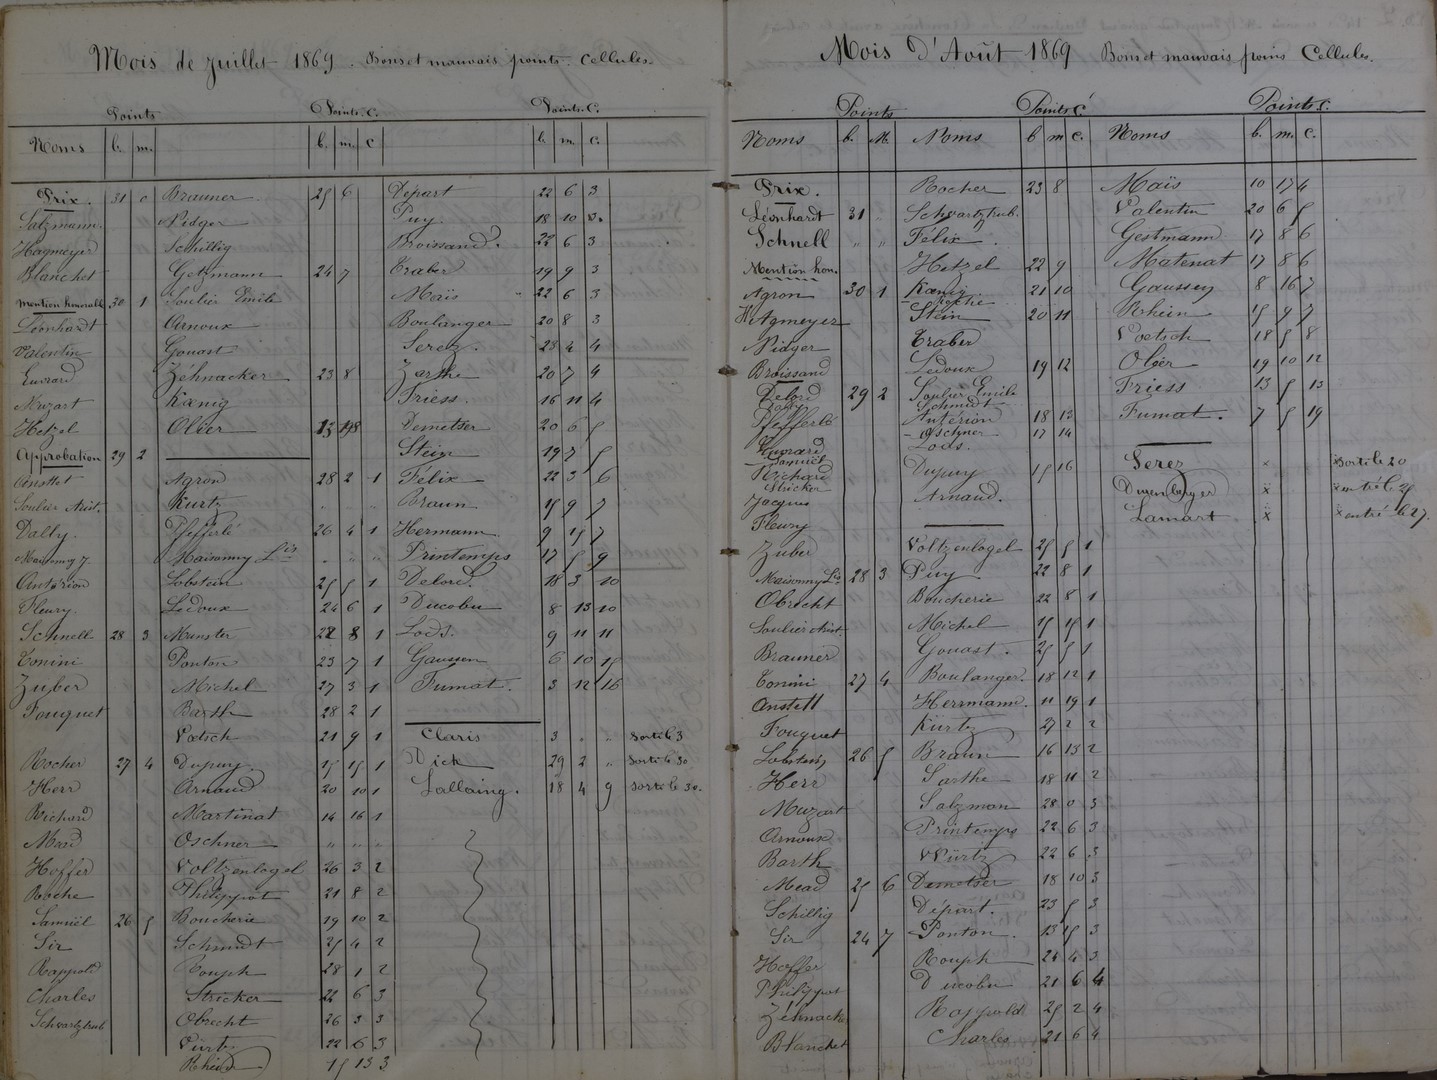 Mois de Juillet 1869. Bons et mauvais points. Cellules.
Points
Noms b. m.
Prix. 31 0
Salzmann.
Hagmeyer
Blanchet
Mention honorable 30 1
Léonhardt
Valentin
Euvrard
Muzart
Hetzel
Approbation 29 2
Anstett
Soulier Aust.
Dally.
Maisonny J.
Antérion
Fleury.
Schnell 28 3
Tonini
Zuber
Fouquet
Rocher 27 4
Herr
Richard
Mead
Hoffer
Roche
Samüel 26 5
Sir
Rappold
Charles
Schwartztrub
Points. C.
b. m. c
Brauner 25 6
Nidger
Schillig
Getzmann 24 7
Soulier Emile
Arnoux
Gouast
Zéhnacker 23 8
Kœnig
Olier
Agron 28 2 1
Kurtz " " "
Pfefferlé 26 4 1
Maisonny Lis " " "
Lobstein 25 5 1
Ledoux 24 6 1
Munster 8 1
Ponton 23 7 1
Michel 27 3 1
Barth 28 2 1
Vœtsch 21 9 1
Dupuy. 15 15 1
Arnaud 20 10 1
Martinat 14 16 1
Oschner " " "
Voltzenlogel 26 3 2
Philippot 21 8 2
Boucherie 19 10 2
Schmidt 25 4 2
Rouph 28 1 2
Stricker 22 6 3
Obrecht 26 3 3
Würtz 22 6 3
Rhein 15 13 3
Points. C.
b. m. c.
Départ 22 6 3
Puy. 18 10 3.
Broissand. 22 6 3
Traber 19 9 3
Maïs " 22 6 3
Boulanger 20 8 3
Serez. 4 4
Zarthe 20 7 4
Friess. 16 11 4
Demetser 20 6 5
Stein 19 7 5
Félix 22 3 6
Braun 15 9 7
Hermann 9 15 7
Printemps 17 5 9
Delord. 18 3 10
Ducobu 8 13 10
Lods. 9 11 11
Gaussen 6 10 15
Fumat. 3 12 16
Claris 3 " " Sorti le 3
Dick 29 2 " Sorti le 30
Lallaing. 18 4 9 Sorti le 30.
Mois D'Août 1869 Bons et mauvais poins Cellules.
Points
Noms b. M.
Prix.
Léonhardt 31 "
Schnell " "
Mention hon.
Agron 30 1
Hagmeyer
Nidger
Broissand
Delord 29 2
Pfefferlé
Euvrard
Samuël
Richard
Stricker
Jacques
Fleury
Zuber
Maisonny Lis 28 3
Obrecht
Soulier Aust.
Brauner
Tonini 27 4
Anstett
Fouquet
Lobstein 26 5
Herr
Muzart
Arnoux
Barth
Mead 25 6
Schillig
Sir 24 7
Hoffer
Philippot
Zéhnacker
Blanchet
Points C.
Noms b m c.
Rocher 23 8
Schwartztrub.
Félix
Hetzel 22 9
Kœnig 21 10
Roche
Stein 20 11
Traber
Ledoux 19 12
Soulier Emile
Schmidt
Antérion 18 13
Oschner 17 14
Lods.
Dupuy 15 16
Arnaud.
Voltzenlogel 25 5 1
Puy 22 8 1
Boucherie 22 8 1
Michel 15 15 1
Gouast. 25 5 1
Boulanger. 18 12 1
Herrmann. 11 19 1
Kürtz 27 2 2
Braun 16 13 2
Sarthe 18 11 2
Salzman 28 0 3
Printemps 22 6 3
Würtz 22 6 3
Demetser 18 10 3
Départ. 23 5 3
Ponton. 13 15 3
Rouph 24 4 3
Ducobu 21 6 4
Rappold 25 2 4
Charles 21 6 4
Points C.
Noms b. m. c.
Maïs 10 17 4
Valentin 20 6 5
Gestmann 17 8 6
Matenat 17 8 6
Gaussen 8 16 7
Rhein 15 9 7
Voetsch 18 5 8
Olier 19 10 12
Friess 13 5 13
Fumat. 7 5 19
Serez x x Sorti le 20
Dugenberger x x entré le 25
Lamart x x entré le 27.